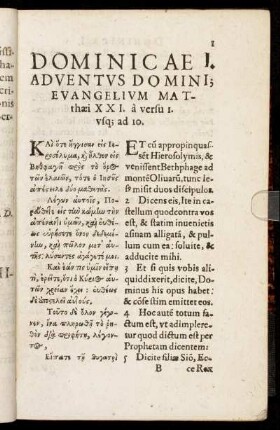 1
DOMINICAE I.
ADVENTVS DOMINI;
EVANGELIVM MAT-
thæi XXI. à versu 1.
vsq; ad 10.
Καὶ ὅτε ἤγγισαν εἰς Ιε-
ροσόλυμα, καὶ ἦλθον εἰς
Βηθφαγῆ πρὸς τὸ ὄρος
τῶν ἐλαιῶν, τότε ὁ Ἰησοῦς
ἀπέστειλε δύο μαθητάς.
Λέγων αὐτοῖς, Πο-
ρεύθητε εἰς τὴν κώμην τὴν
ἀπέναντι ὑμῶν, καὶ εὐθέ-
ως εὑρήσετε ὄνον δεδεμέ-
νην, καὶ πῶλον μετ' αὐ-
τῆς· λύσαντες ἀγάγετέ μοι.
Καὶ ἐάν τις ὑμῖν εἴπῃ
τὶ, ἐρεῖτε, ὅτι ὁ Κύριος αὐ-
τῶν χρείαν ἔχει· εὐθέως
δὲ ἀποστελεῖ αὐτούς.
Τοῦτο δὲ ὅλον γέγο-
νεν, ἵνα πληρωθῇ τὸ ῥη-
θὲν διὰ προφήτου, λέγον-
τος,
Εἴπατε τῇ θυγατρὶ
ET cũ appropinquas-
sẽt Hierosolymis, &
venissent Bethphage ad
montẽ Oliuarũ, tunc Ie-
sus misit duos discipulos.
2 Dicens eis, Ite in ca-
stellum quod contra vos
est, & statim inuenietis
asinam alligatã, & pul-
lum cum ea: soluite, &
adducite mihi.
3 Et si quis vobis ali-
quid dixerit, dicite, Do-
minus his opus habet:
& cõfestim emittet eos.
4 Hoc autẽ totum fa-
ctum est, vt adimplere-
tur quod dictum est per
Prophetam dicentem:
5 Dicite filiæ Siõ, Ec-
B
ce Rex